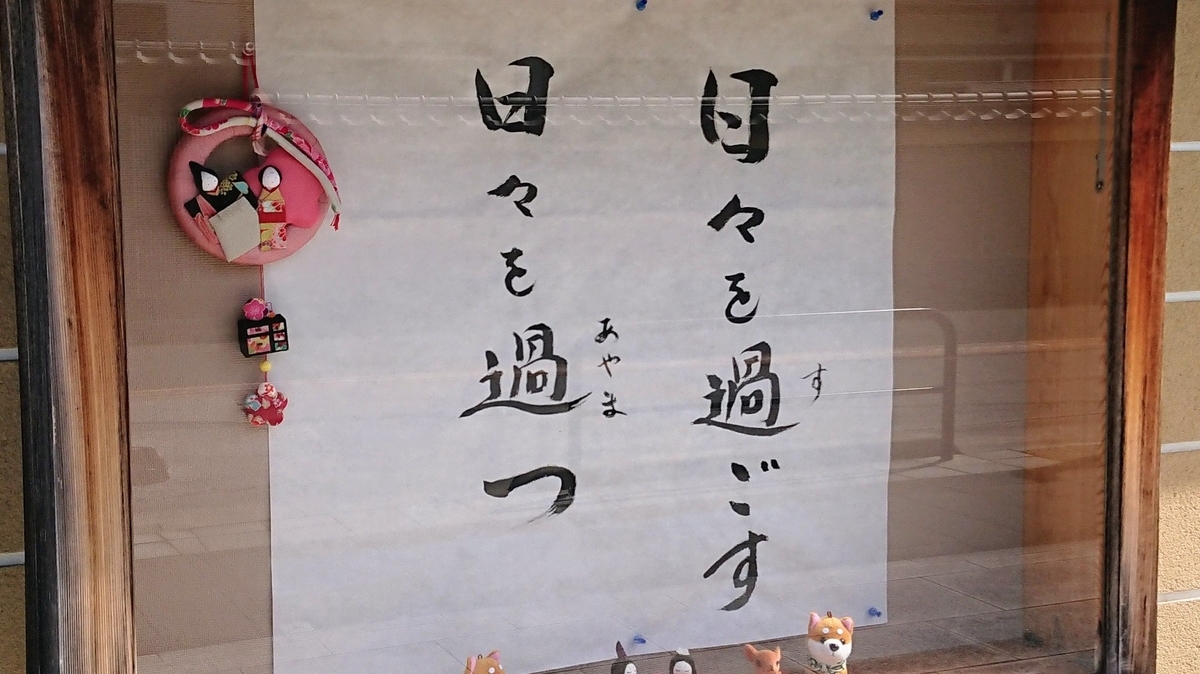 日々を過ごす
す
日々を過つ
あやま